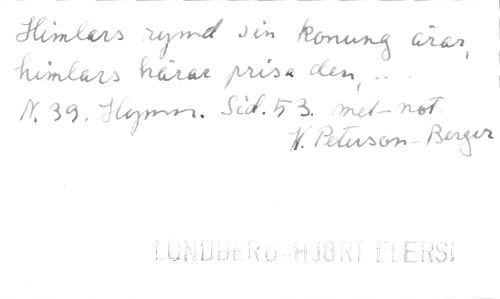 Himlars rymd sin konung ärar,
himlars härar prisa den, ...
N. 39. Hymn. Sid. 53. met-not.
W. Peterson-Berger
LUNDBERG-HJORT FLERS